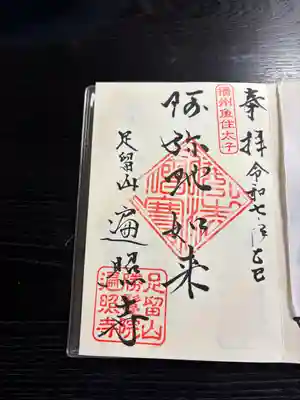 奉拝 令和七年乙巳
播州魚住太子
阿弥陀如来
足留山 遍照寺
足留山
遍照寺